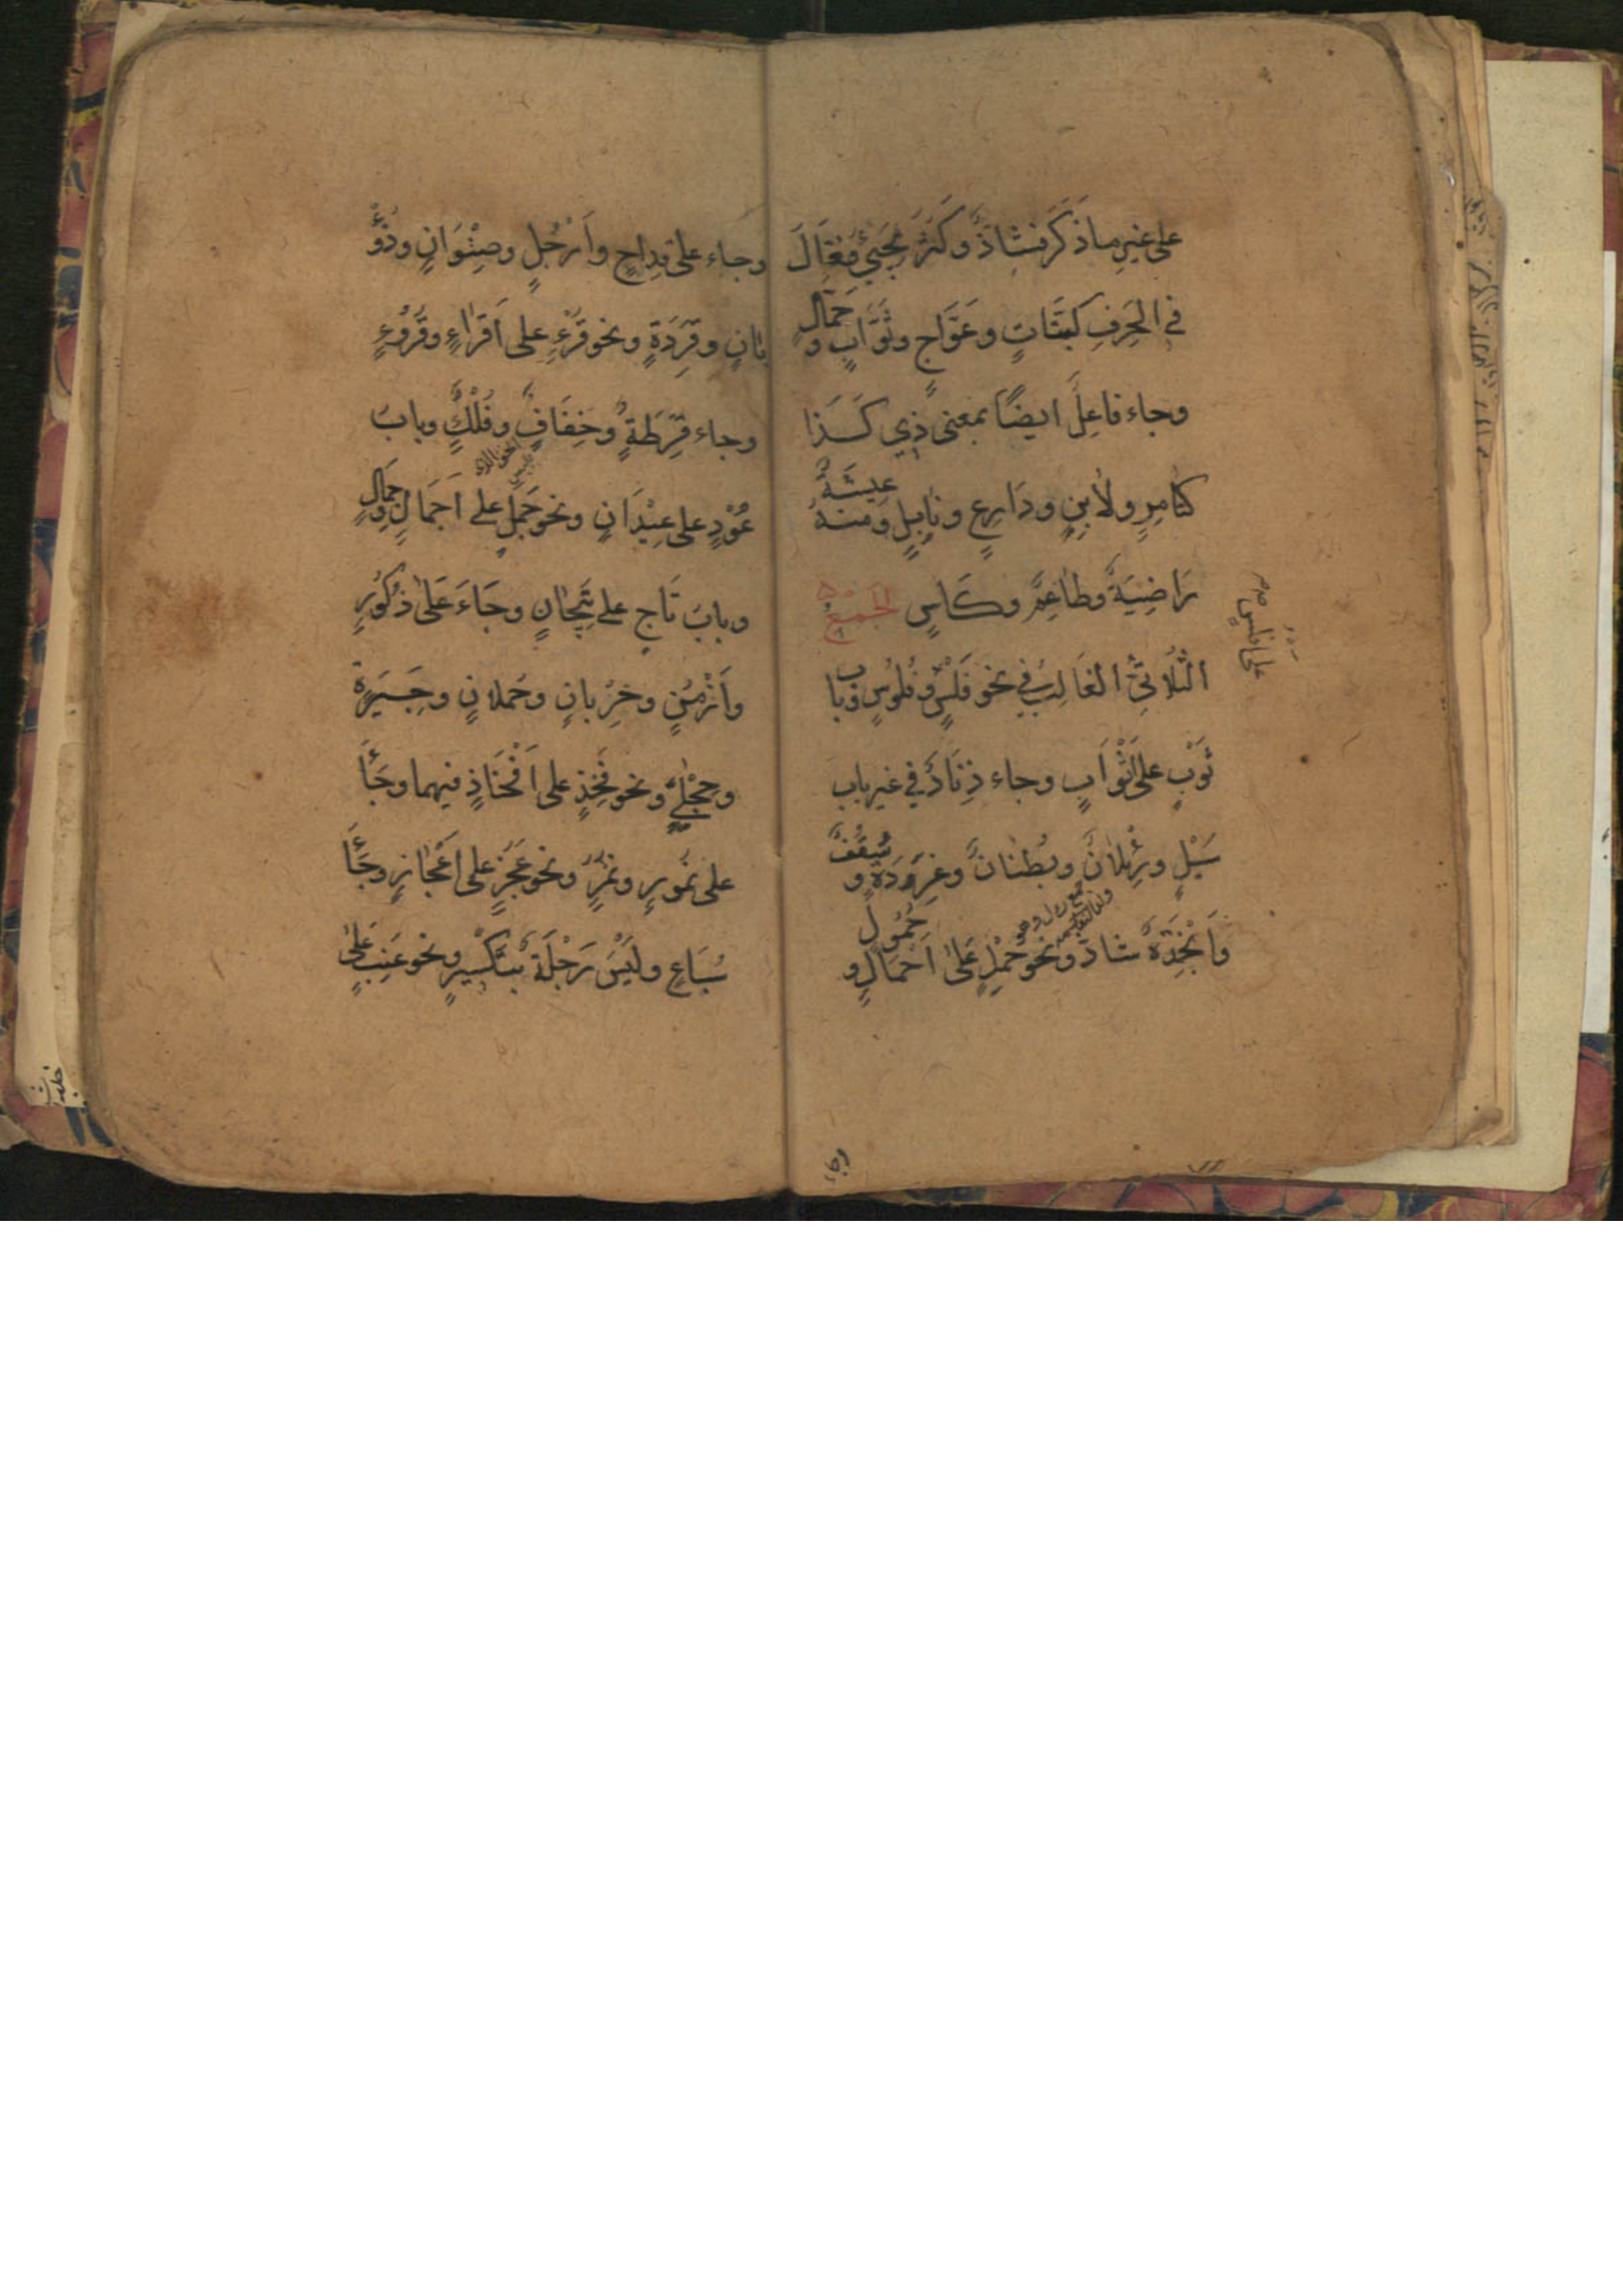 على غير ما ذكر فشاذ وكثر مجيء فعال
في الحرف كبتات وعواج وثواب وجمال
وجاء فاعل ايضا بمعنى ذي كذا
كتامر ولابن ودارع ونابل ومنه عيشة
راضية وطاعم وكاس الجمع
الثلاثي الغالب في نحو فلس فلوس وباب
ثوب على اثواب وجاء زناد في غير باب
سيل ورئلان وبطنان وغردة وسقف
وانجدة شاذ ونحو حمل على احمال وحمول
على افلس
وجاء
وجاء على قداح وارجل وصنوان وذؤ
بان وقردة ونحو قرء على اقراء وقروء
وجاء قرطة وخفاف وفلك وباب
عود على عيدان ونحو جمل على اجمال وجمال
وباب تاج على تيجان وجاء على ذكور
وازمن وخربان وحملان وجيرة
وحجلى ونحو فخذ على افخاذ فيهما وجاء
على نمور ونمر ونحو عجز على اعجاز وجاء
سباع وليس رجلة بتكسير ونحو عنب على